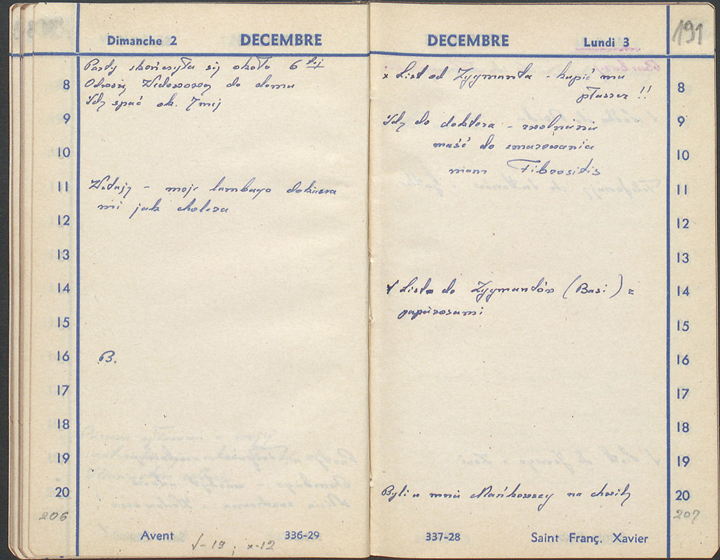 Dimanche 2 DECEMBRE
Party skończyło się około 6 tej
8
Odwożę Wdowszewy do domu
Idę spać ok. 7mej
9
10
11
Wstaję - moje lumbago dokucza
mi jak cholera
12
13
14
15
16 B.
17
18
19
20
206
Avent 336-29
√-19 ; x-12
DECEMBRE Lundi 3
191
x List od Zygmunta - kupić mu
płaszcz !!
8
Idę do doktora - zwolnienie
9
maść do smarowania
10
mam Fibrositis
11
12
13
√ Lista do Zygmuntów (Basi) z
14
papierosami
15
16
17
18
19
Byli u mnie Mańkowscy na chwilę
20
207
337-28 Saint Franç. Xavier